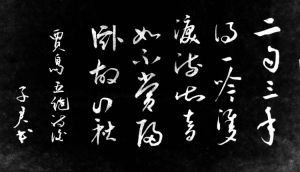 二句三年
得一吟雙
淚流知音
如不賞歸
卧故山秋
賈島五絕詩
子君书